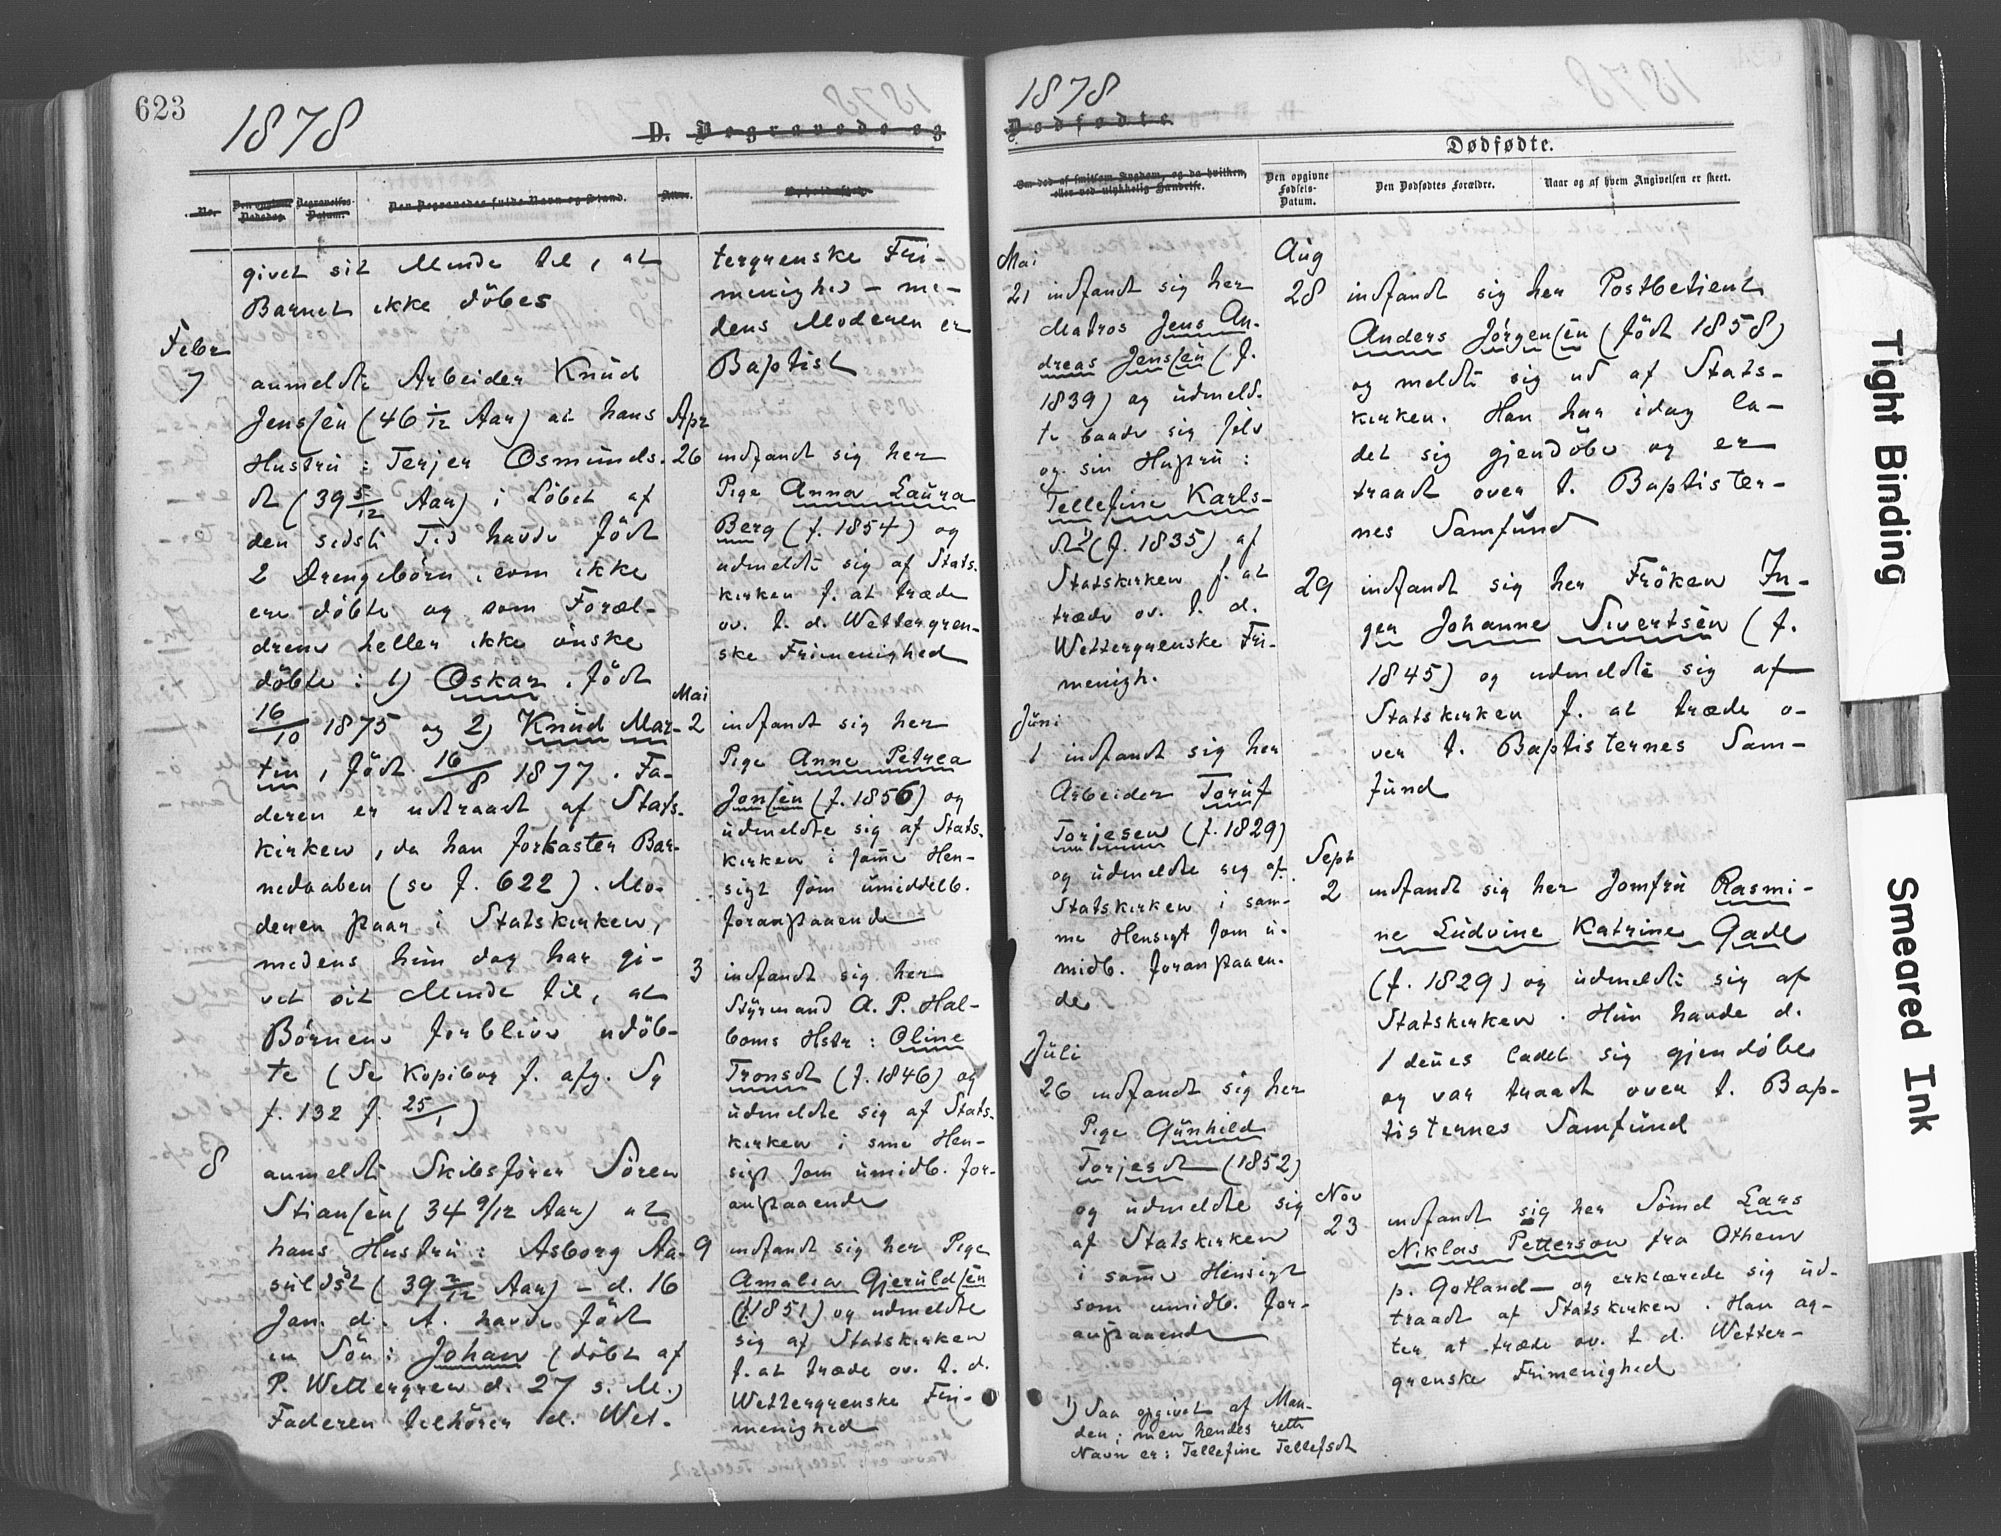 623
1878
D. Begravede og
No.
Den opgivne Dødsdag.
Begravelses-Datum.
Den Begravedes fulde Navn og Stand.
Alder.
givet sit Minde til, at
Barnet ikke döbes
Febr
7 anmeldte Arbeider Knud
Jenssen (46 1/12 Aar) at hans
Hustru: Terjer Osmunds-
dt (39 5/12 Aar) i Löbet af
den sidste Tid havde födt
2 Drengebörn, som ikke
ere döbte og som Foræl-
drene heller ikke önske
döbte: 1) Oskar, födt
16/10 1875 og 2) Knud Mar-
tin, födt 16/8 1877. Fa-
deren er udtraadt af Stats-
kirken, da han forkaster Bar-
nedaaben (se f. 622). Mo-
deren staar i Statskirken,
medens hun dog har gi-
vet sit Minde til, at
Børnene forblive udöb-
te (Se Kopibog f. afg. Sg
f. 132 f. 25/1)
8 anmeldte Skibsfører Sören
Stianssen (34 9/12 Aar) at
hans Hustru: Asborg Aa-
suldsdt (39 2/12 Aar) – d. 16
Jan. d. A. havde födt
en Sön: Johan (döbt af
P. Wettergren d. 27 s. M.)
Faderen tilhörer d. Wet-
tergrenske Fri-
menighed – me-
dens Moderen er
Baptist
Apr
26 indfandt sig her
Pige Anna Laura
Berg (f. 1854) og
udmeldte sig af Stats-
kirken f. at træde
ov. t. d. Wettergren-
ske Frimenighed
Mai
2 indfandt sig her
Pige Anne Petrea
Jonsen (f. 1856) og
udmeldte sig af Stats-
kirken i samme Hen-
sigt som umiddelb.
foranstaaende
3 indfandt sig her
Styrmand A. P. Hal-
boms Hstr: Oline
Tronsdt (f. 1846) og
udmeldte sig af Stats-
kirken i sme Hen-
sigt som umidb. for-
anstaaende
9 indfandt sig her Pige
Amalia Gjeruldsen
(f. 1851) og udmeldte
sig af Statskirken
f. at træde ov. t. d.
Wettergrenske Fri-
menighed
1878
Dødfødte.
Om død af smitsom Sygdom, og da hvilken, eller ved ulykkelig Hændelse.
Dødfødte.
Den opgivne Fødsels-Datum.
Den Dødfødtes Forældre.
Naar og af hvem Angivelsen er skeet.
Mai
21 indfandt sig her
Matros Jens An-
dreas Jenssen (f.
1839) og udmeld-
te baade sig selv
og sin Hustru:
Tellefine Karls-
dt 1) (f. 1835) af
Statskirken f. at
træde ov. t. d.
Wettergrenske Fri-
menigh.
Juni
1 indfandt sig her
Arbeider Toruf
Torjesen (f. 1829)
og udmeldte sig af
Statskirken i sam-
me Hensigt som u-
midb. foranstaaen-
de
Juli
26 indfandt sig her
Pige Gunhild
Torjesdt (1852)
og udmeldte sig
af Statskirken
i samme Hensigt
som umidb. for-
anstaaende
1) Saa opgivet af Man-
den; men hendes rette
Navn er: Tellefine Tellefsdt
Aug
28 indfandt sig her Postbetient
Anders Jørgensen (födt 1858)
og meldte sig ud af Stats-
kirken. Han har idag la-
det sig gjendöbe og er
traadt over t. Baptister-
nes Samfund
29 indfandt sig her Fröken In-
ger Johanne Sivertsen (f.
1845) og udmeldte sig af
Statskirken f. at træde o-
ver t. Baptisternes Sam-
fund
Sept
2 indfandt sig her Jomfru Rasmi-
ne Ludvine Katrine Gade
(f. 1829) og udmeldte sig af
Statskirken. Hun havde d.
1 denes ladet sig gjendöbe
og var traadt over t. Bap-
tisternes Samfund
Nov
23 indfandt sig her Sömd Lars
Niklas Petterson fra Othem
p. Gotland – og erklærede sig ud-
traadt af Statskirken. Han ag-
ter at træde ov. t d. Wetter-
grenske Frimenighed
Tight Binding
Smeared Ink